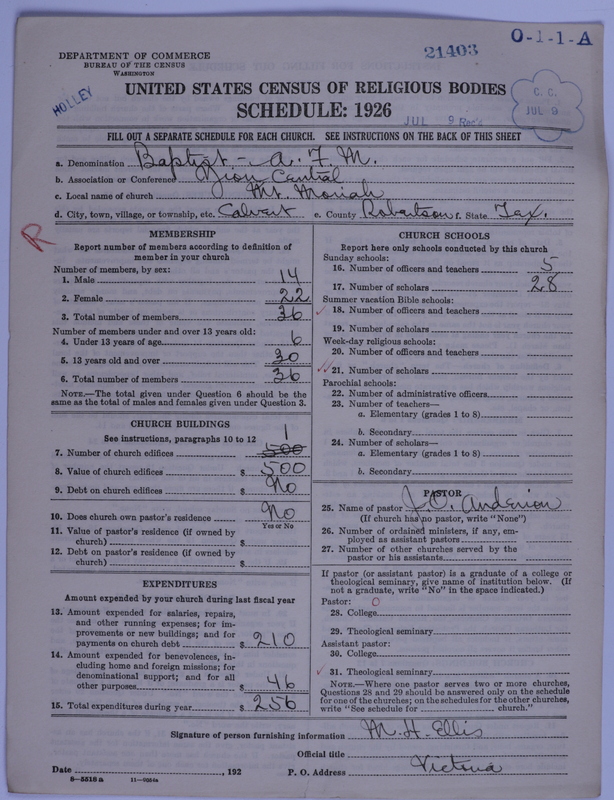 O-1-1-A
21403
DEPARTMENT OF COMMERCE
BUREAU OF THE CENSUS
WASHINGTON
HOLLEY
C. C.
JUL 9
UNITED STATES CENSUS OF RELIGIOUS BODIES
SCHEDULE: 1926
JUL 9 Rec'd
FILL OUT A SEPARATE SCHEDULE FOR EACH CHURCH. SEE INSTRUCTIONS ON THE BACK OF THIS SHEET
a. Denomination Baptist - A. F. M.
b. Association or Conference Zion Central
c. Local name of church Mt. Moriah
d. City, town, village, or township, etc. Calvert e. County Robertson f. State Tex.
R
MEMBERSHIP
Report number of members according to definition of
member in your church
Number of members, by sex:
1. Male 14
2. Female 22
3. Total number of members 36
Number of members under and over 13 years old:
4. Under 13 years of age 6
5. 13 years old and over 30
6. Total number of members 36
NOTE.—The total given under Question 6 should be
the same as the total of males and females given under Question 3.
CHURCH BUILDINGS
See instructions, paragraphs 10 to 12 1
7. Number of church edifices 500
8. Value of church edifices $ 500
9. Debt on church edifices $ No
10. Does church own pastor's residence No
Yes or No
11. Value of pastor's residence (if owned by
church) $
12. Debt on pastor's residence (if owned by
church) $
EXPENDITURES
Amount expended by your church during last fiscal year
13. Amount expended for salaries, repairs,
and other running expenses; for im-
provements or new buildings; and for
payments on church debt $ 210
14. Amount expended for benevolences, in-
cluding home and foreign missions; for
denominational support; and for all
other purposes $ 46
15. Total expenditures during year $ 256
CHURCH SCHOOLS
Report here only schools conducted by this church
Sunday schools:
16. Number of officers and teachers 5
17. Number of scholars 28
Summer vacation Bible schools:
18. Number of officers and teachers
19. Number of scholars
Week-day religious schools:
20. Number of officers and teachers
21. Number of scholars
Parochial schools:
22. Number of administrative officers
23. Number of teachers—
a. Elementary (grades 1 to 8)
b. Secondary
24. Number of scholars—
a. Elementary (grades 1 to 8)
b. Secondary
PASTOR
25. Name of pastor J. O. Anderson
(If church has no pastor, write "None")
26. Number of ordained ministers, if any, em-
ployed as assistant pastors
27. Number of other churches served by the
pastor or his assistants
If pastor (or assistant pastor) is a graduate of a college or
theological seminary, give name of institution below. (If
not a graduate, write "No" in the space indicated.)
Pastor: 0
28. College
29. Theological seminary
Assistant pastor:
30. College
31. Theological seminary
NOTE.—Where one pastor serves two or more churches,
Questions 28 and 29 should be answered only on the schedule
for one of the churches; on the schedules for the other churches,
write "See schedule for church."
Signature of person furnishing information M. H. Ellis
Official title
Date , 192 P. O. Address Victoria
8-5518 a 11-9084a